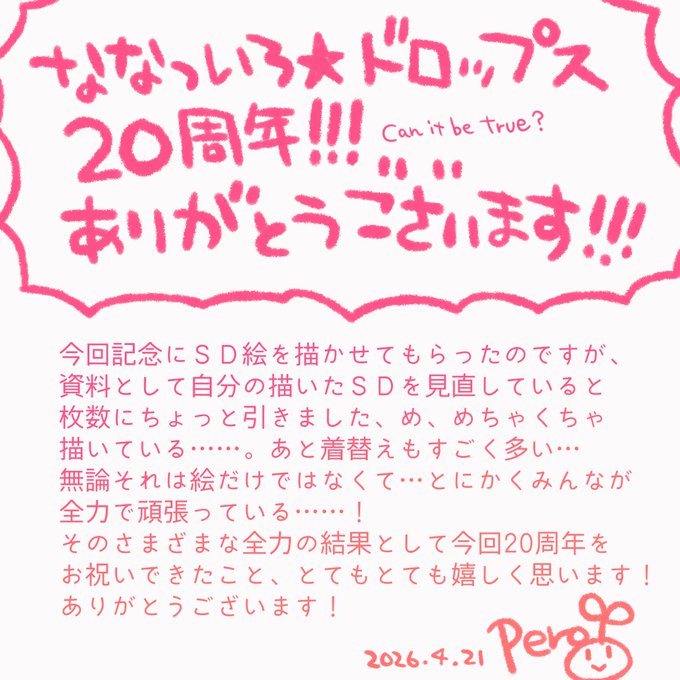 ななついろ★ドロップス
20周年!!!
Can it be true?
ありがとうございます!!!
今回記念にＳＤ絵を描かせてもらったのですが、
資料として自分の描いたＳＤを見直していると
枚数にちょっと引きました、め、めちゃくちゃ
描いている……。あと着替えもすごく多い…
無論それは絵だけではなくて…とにかくみんなが
全力で頑張っている……！
そのさまざまな全力の結果として今回20周年を
お祝いできたこと、とてもとても嬉しく思います！
ありがとうございます！
2026.4.21 Pero